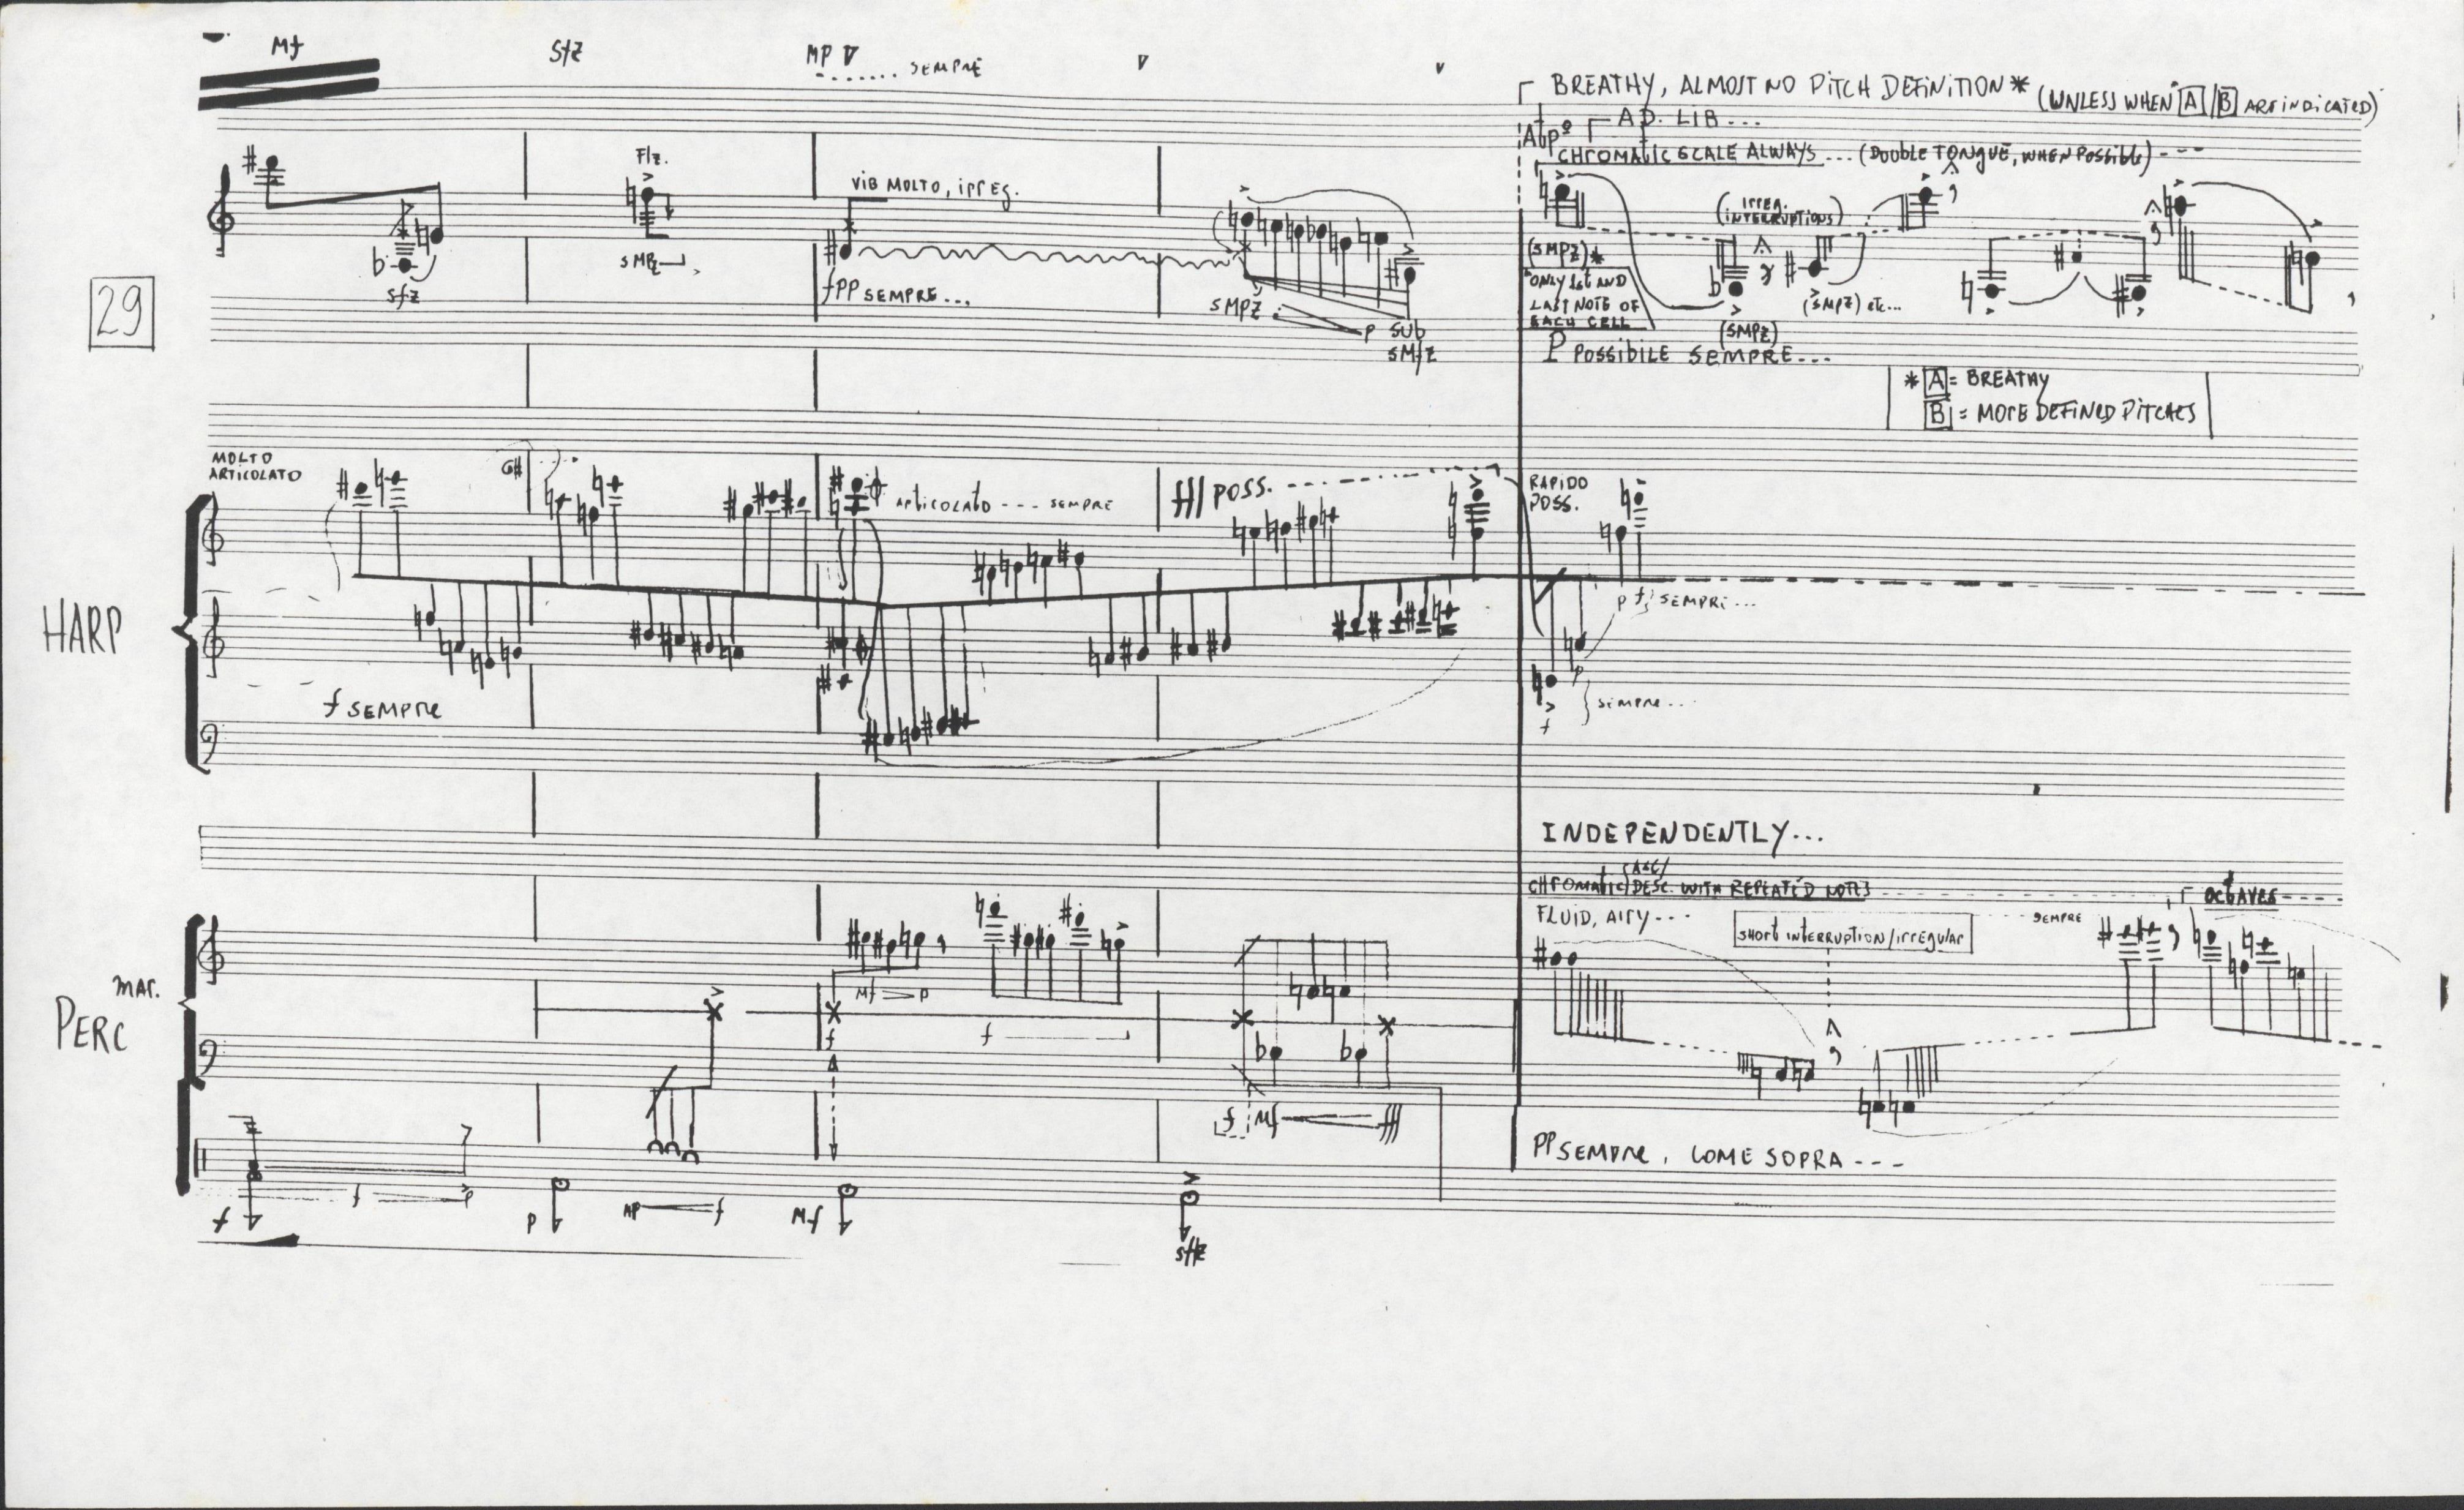 Mf sfz MP SEMPRE
BREATHY, ALMOST NO PITCH DEFINITION* (UNLESS WHEN A / B ARE INDICATED)
AD. LIB...
CHROMATIC SCALE ALWAYS... (DOUBLE TONGUE, WHEN POSSIBLE)---
Flz.
VIB MOLTO, IRREG.
(IRREG. INTERRUPTIONS)
sfz
fPP SEMPRE...
sMPz
P SUB
sMfz
(SMPz)*
*ONLY 1st AND
LAST NOTE OF
EACH CELL
(SMPz)
(SMPz) etc...
P POSSIBILE SEMPRE...
29
* A = BREATHY
B = MORE DEFINED PITCHES
MOLTO
ARTICOLATO
G#
ARTICOLATO --- SEMPRE
fff POSS.
RAPIDO
POSS.
HARP
f SEMPRE
P f} SEMPRE...
P
f
} SEMPRE...
INDEPENDENTLY...
(ASC/
CHROMATIC/DESC. WITH REPEATED NOTES
FLUID, AIRY---
SHORT INTERRUPTION/IRREGULAR
SEMPRE
OCTAVES---
MAR.
PERC
Mf P
f
f
f Mf fff
PP SEMPRE, COME SOPRA---
f f P P MP f Mf sffz